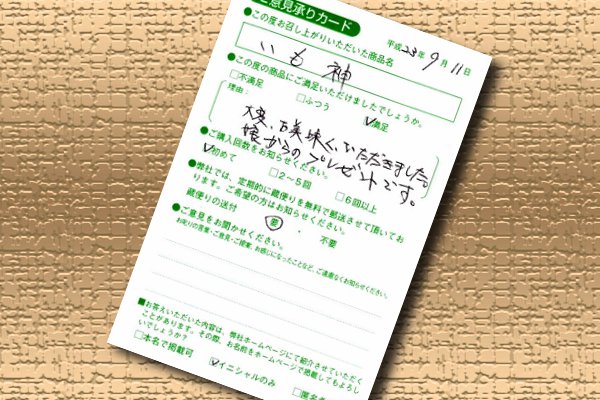 ご意見承りカード
平成23年9月11日
●この度お召し上がりいただいた商品名
いも神
●この度の商品にご満足いただけましたでしょうか。
□不満足 □ふつう ☑満足
理由：
大変、お美味しくいただきました。
娘からのプレゼントです。
●ご購入回数をお知らせください。
☑初めて □2～5回 □6回以上
●弊社では、定期的に蔵便りを無料で郵送させて頂いてお
ります。ご希望の方はお知らせください。
蔵便りの送付 要 ・ 不要
●ご意見をお聞かせください。
お叱りの言葉・ご意見・ご提案、お感じになったことなど、ご遠慮なくお知らせください。
■お答えいただいた内容は、弊社ホームページにて紹介させていただく
ことがあります。その際、お名前をホームページで掲載してもよろし
いでしょうか？
□本名で掲載可 ☑イニシャルのみ □匿名